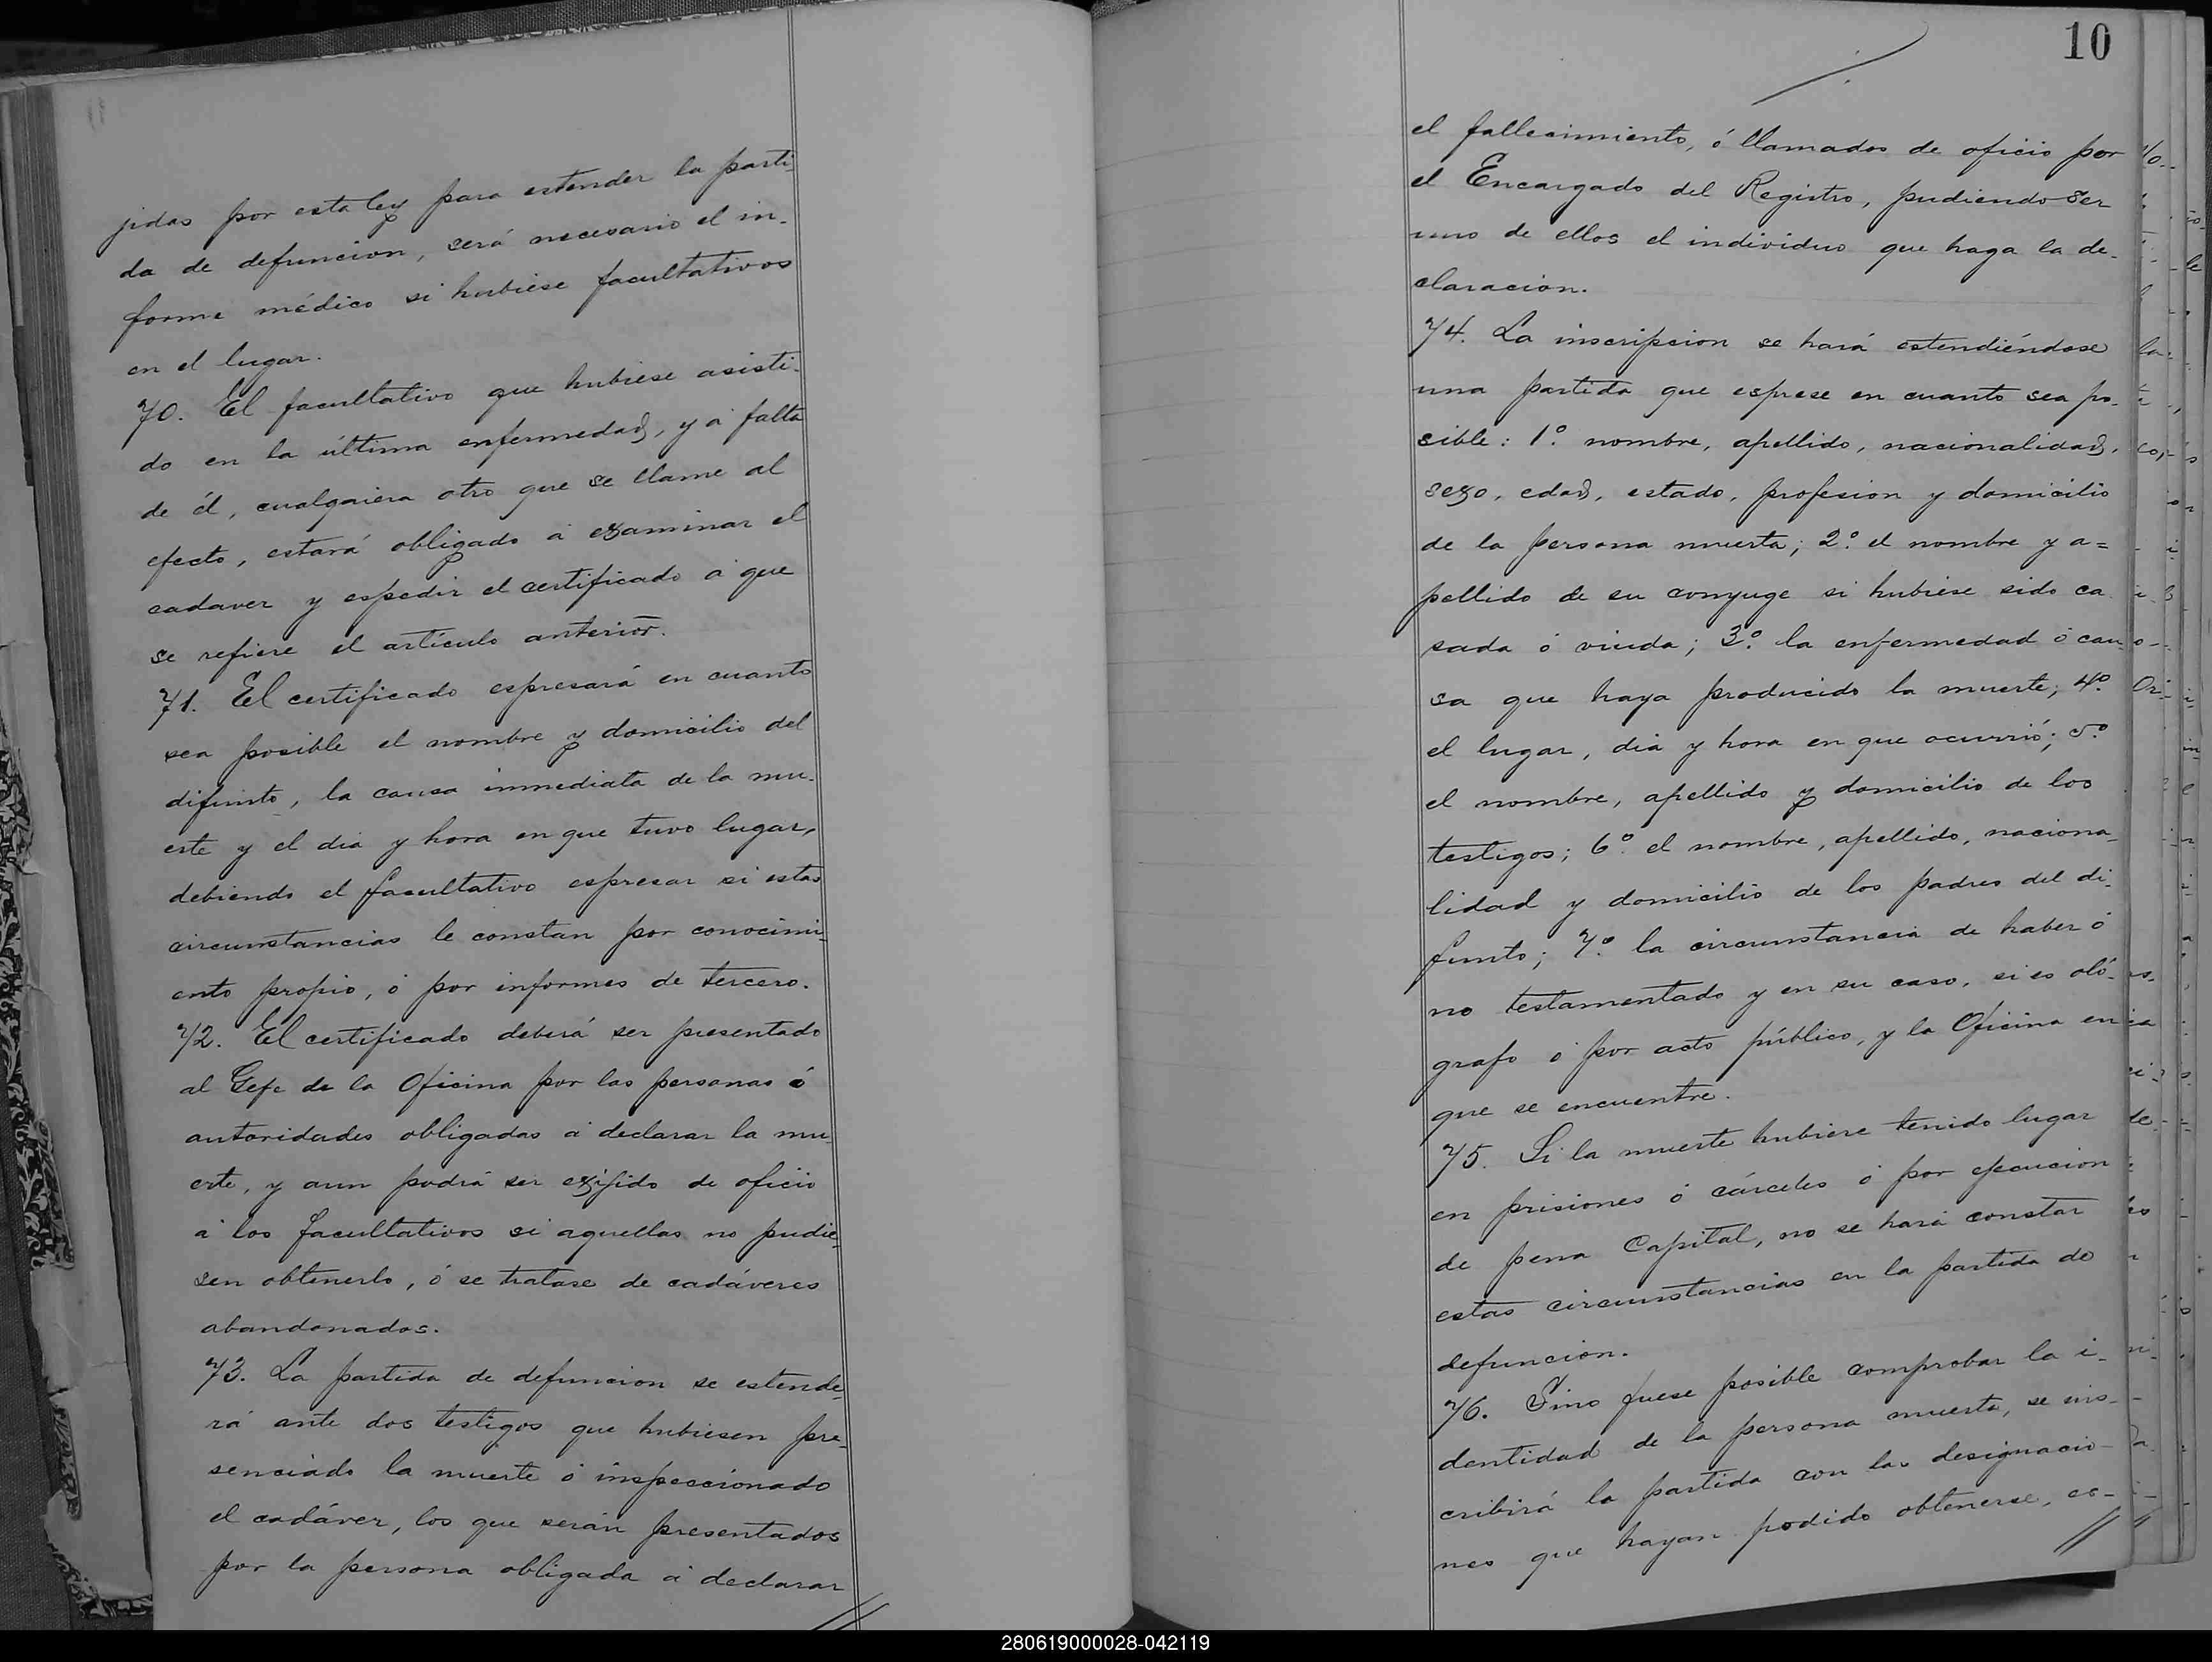 jidas por esta ley para estender la parti-
da de defuncion, será necesario el in-
forme médico si hubiese facultativos
en el lugar.
70. El facultativo que hubiese asisti-
do en la última enfermedad, y á falta
de él, cualquiera otro que se llame al
efecto, estará obligado á examinar el
cadaver y espedir el certificado á que
se refiere el artículo anterior.
71. El certificado espresará en cuanto
sea posible el nombre y domicilio del
difunto, la causa inmediata de la mu-
erte y el dia y hora en que tuvo lugar,
debiendo el facultativo espresar si estas
circunstancias le constan por conocimi-
ento propio, ó por informes de tercero.
72. El certificado deberá ser presentado
al Gefe de la Oficina por las personas ó
autoridades obligadas á declarar la mu-
erte, y aun podrá ser exijido de oficio
á los facultativos si aquellas no pudie-
sen obtenerlo, ó se tratase de cadáveres
abandonados.
73. La partida de defuncion se estende-
rá ante dos testigos que hubiesen pre-
senciado la muerte ó inspeccionado
el cadáver, los que serán presentados
por la persona obligada á declarar
10
el fallecimiento, ó llamados de oficio por
el Encargado del Registro, pudiendo ser
uno de ellos el individuo que haga la de-
claracion.
74. La inscripcion se hará estendiéndose
una partida que esprese en cuanto sea po-
sible: 1º. nombre, apellido, nacionalidad,
sexo, edad, estado, profesion y domicilio
de la persona muerta; 2º. el nombre y a=
pellido de su conyuge si hubiese sido ca
sada ó viuda; 3º. la enfermedad ó cau-
sa que haya producido la muerte; 4º.
el lugar, dia y hora en que ocurrió; 5º.
el nombre, apellido y domicilio de los
testigos; 6º. el nombre, apellido, naciona-
lidad y domicilio de los padres del di-
funto; 7º. la circunstancia de haber ó
no testamentado y en su caso, si es oló-
grafo ó por acto público, y la Oficina en
que se encuentre.
75. Si la muerte hubiere tenido lugar
en prisiones ó cárceles ó por ejecucion
de pena Capital, no se hará constar
estas circunstancias en la partida de
defuncion.
76. Sino fuese posible comprobar la i-
dentidad de la persona muerta, se ins-
cribirá la partida con las designacio-
nes que hayan podido obtenerse, es-
280619000028-042119